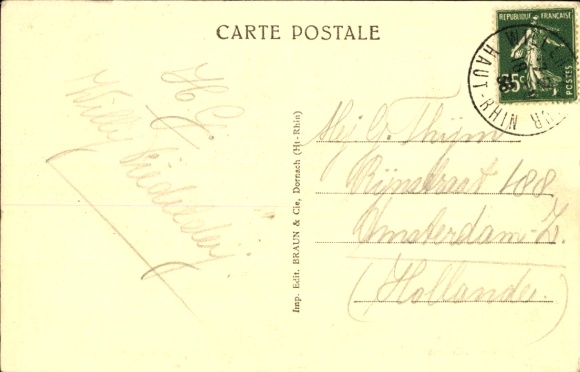 CARTE POSTALE
REPUBLIQUE FRANÇAISE
POSTES
HAUT-RHIN
H. G.
Willy
Imp. Edit. BRAUN & Cie, Dornach (Ht-Rhin)
Mej. G. Thijm
Rijnstraat 188
Amsterdam-Z.
(Hollande.)